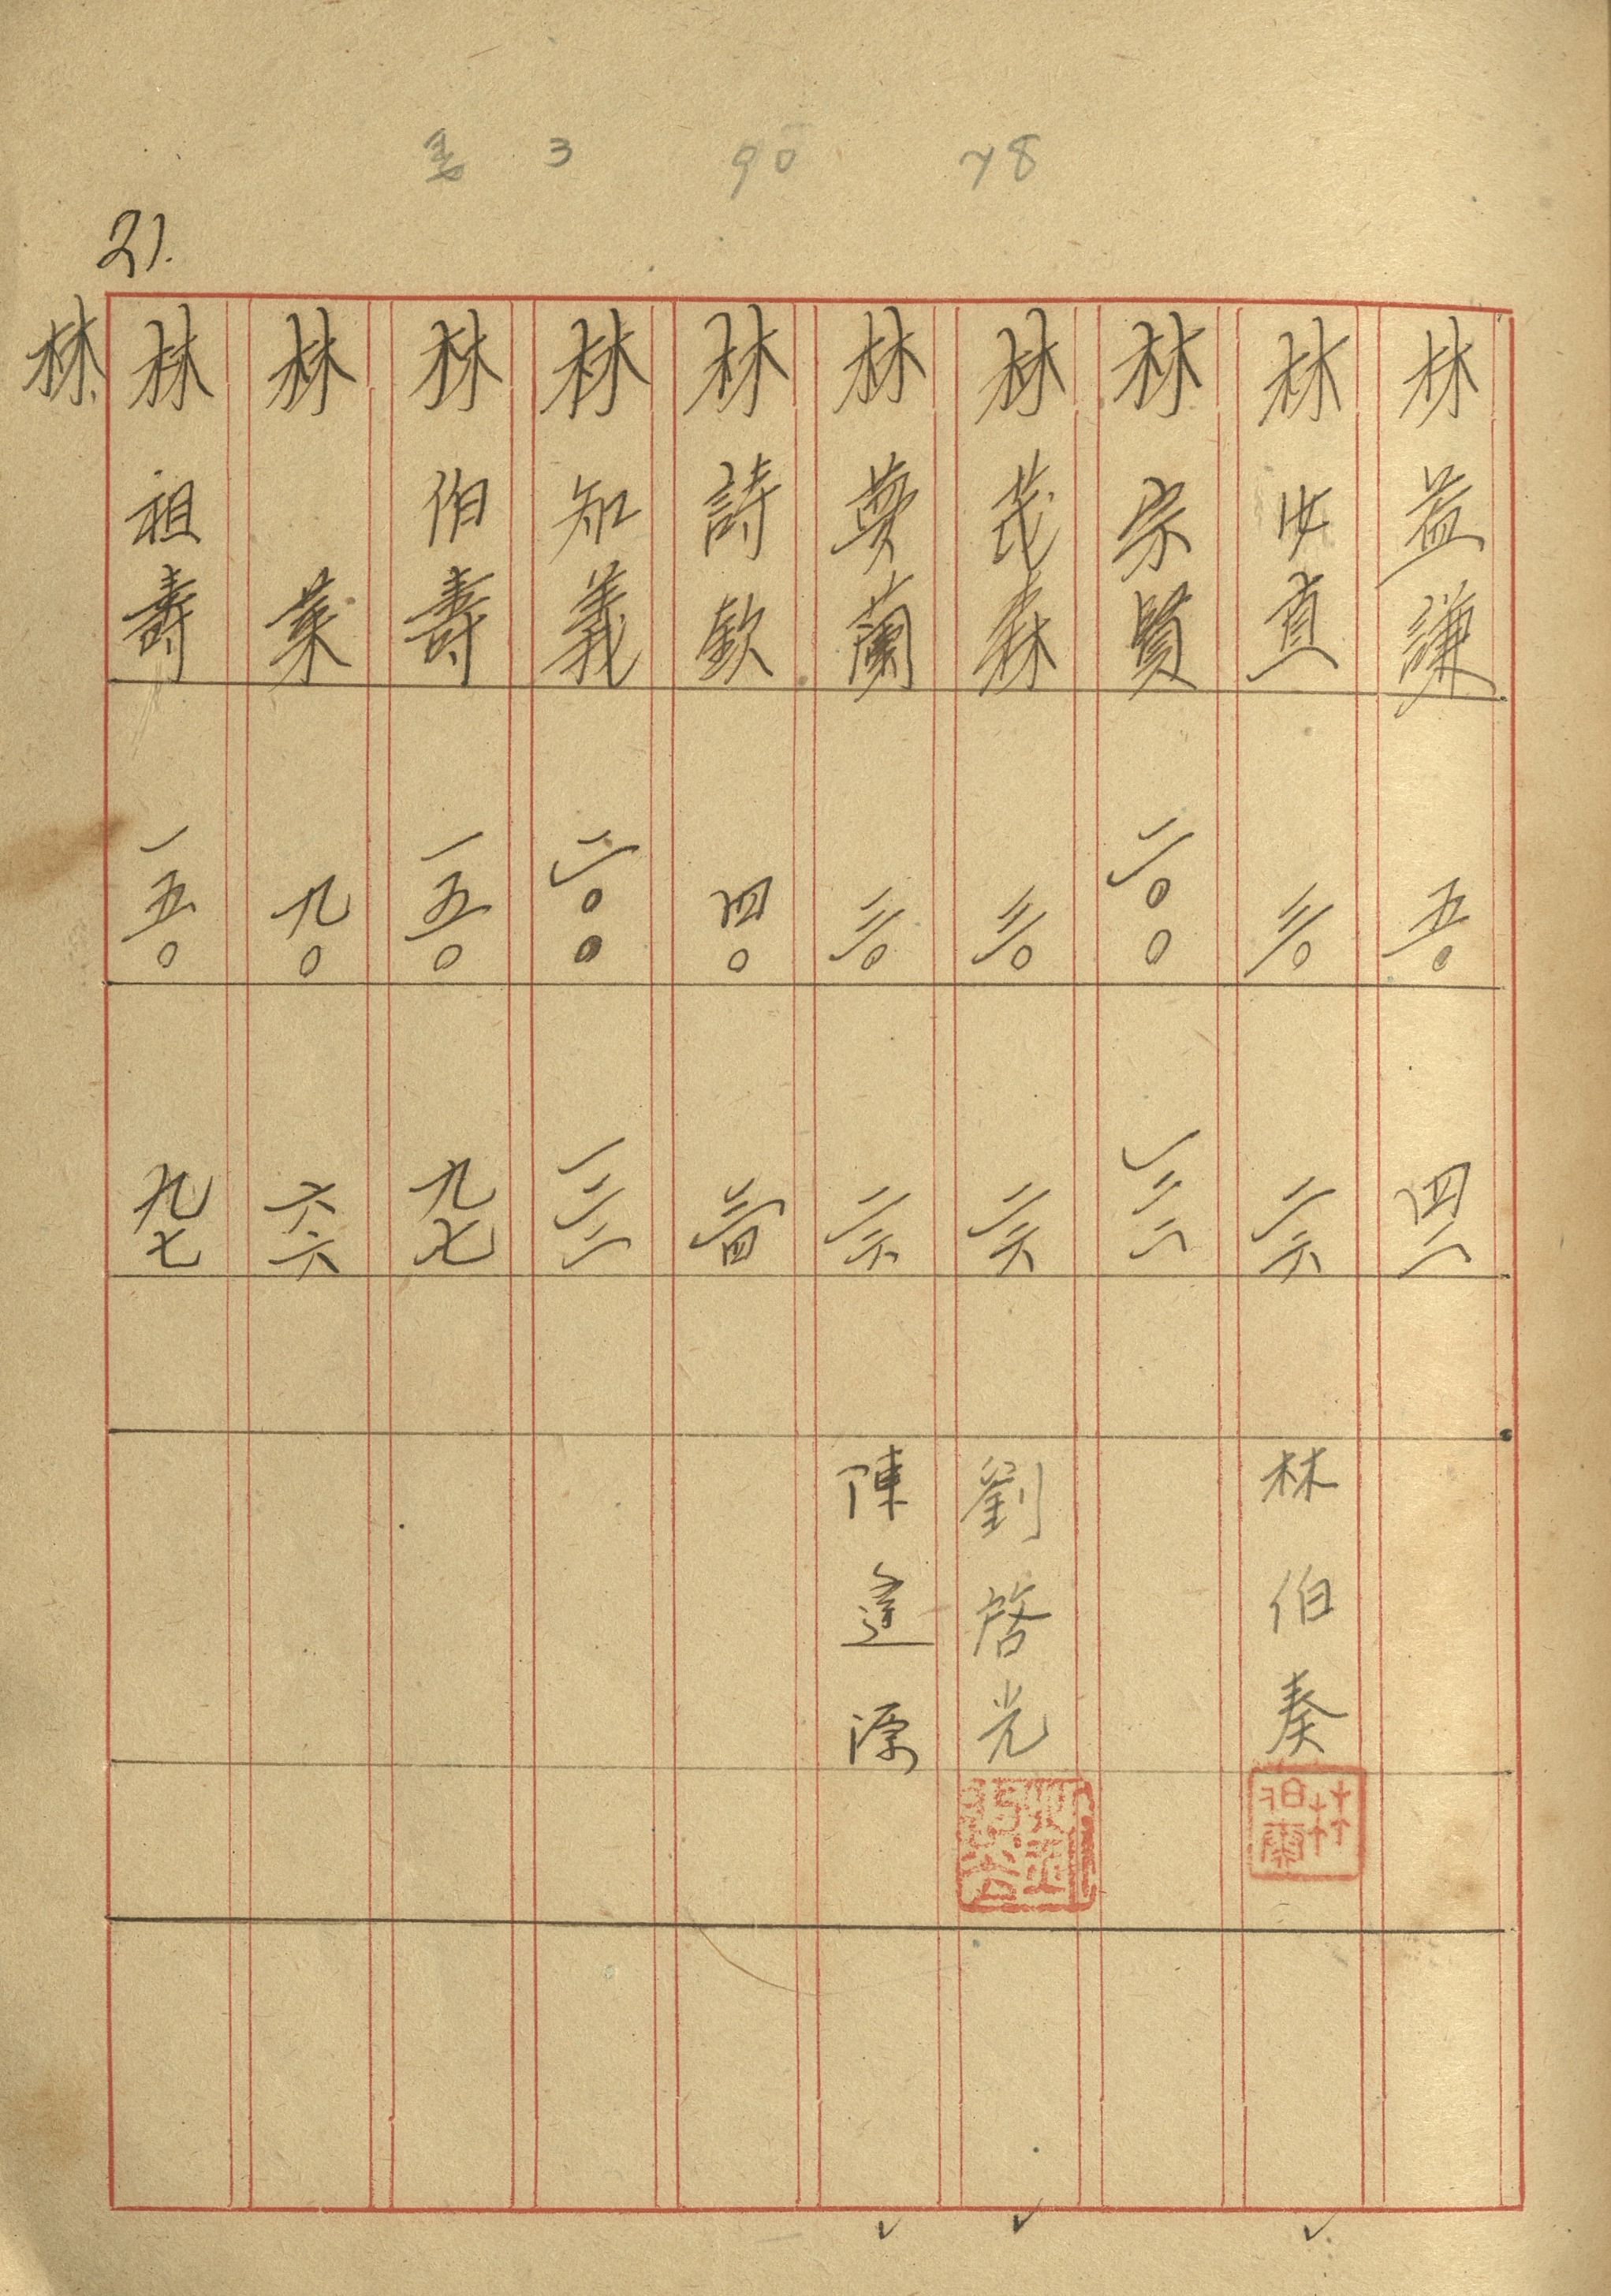 3 90 78
21.
林益謙 五〇 四二
林 直 三〇 二六 林伯奏
林宗賢 二〇〇 一二二
林茂森 三〇 二六 劉啓光
林夢蘭 三〇 二六 陳逢源
林詩欽 四〇 三四
林知義 二〇〇 一二二
林伯壽 一五〇 九七
林 葉 九〇 六六
林祖壽 一五〇 九七
林